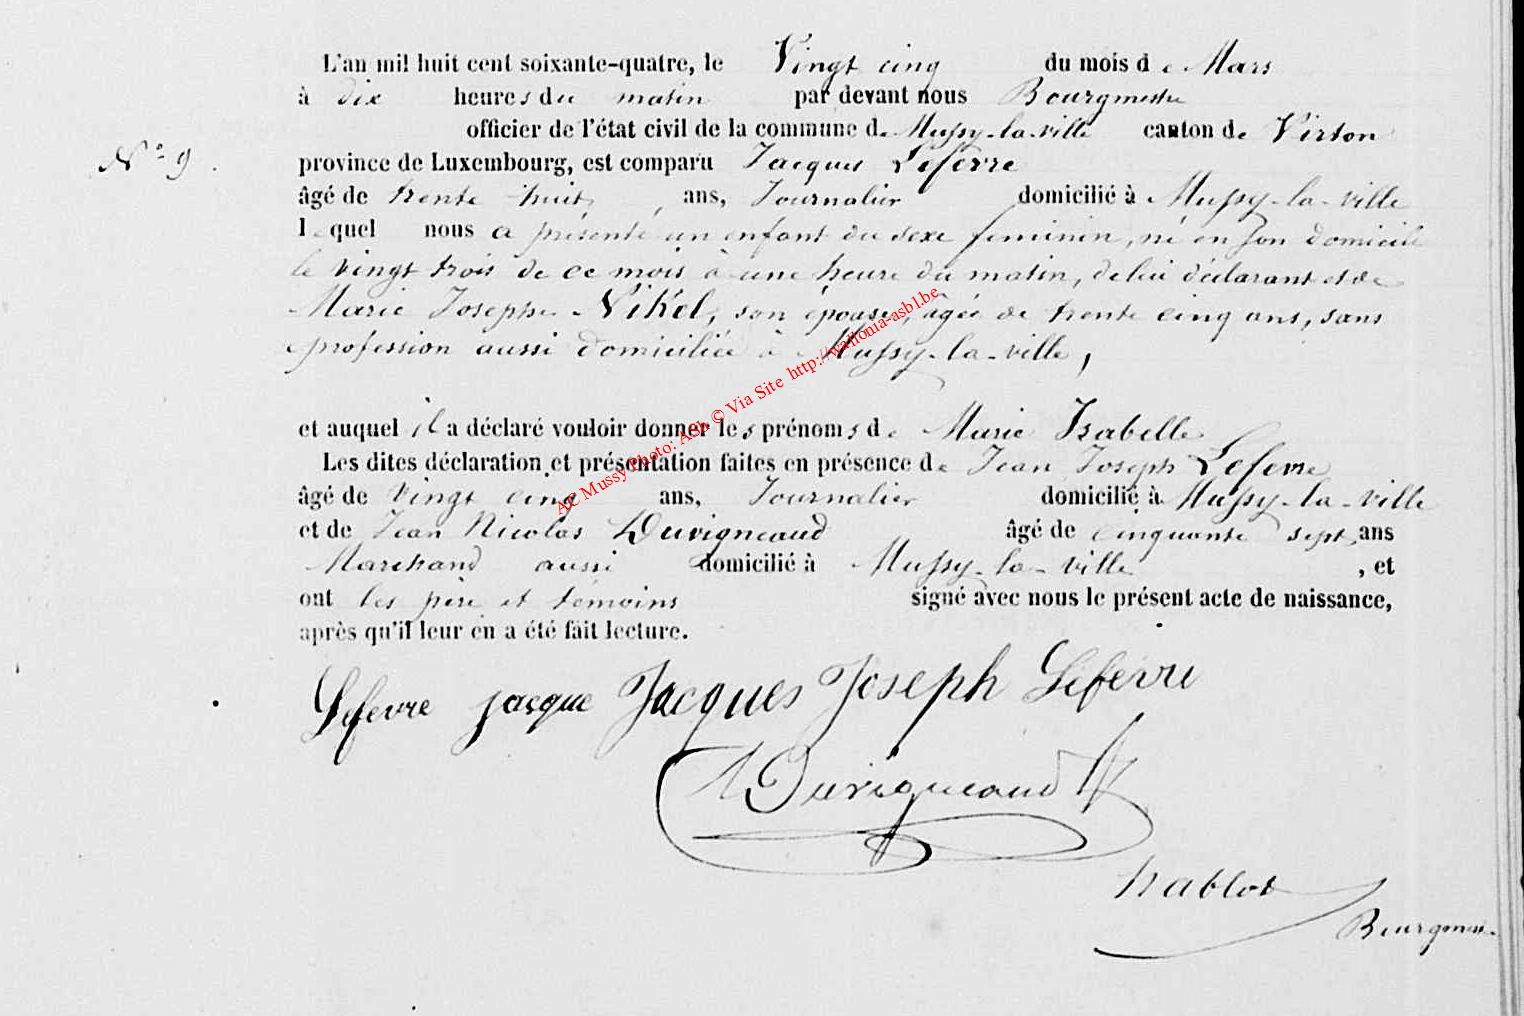 L'an mil huit cent soixante-quatre, le Vingt cinq du mois de Mars
à dix heures du matin par devant nous Bourgmestre
officier de l'état civil de la commune de Mussy-la-ville canton de Virton
N° 9.
province de Luxembourg, est comparu Jacques Lefevre
âgé de trente huit ans, Journalier domicilié à Mussy-la-ville
lequel nous a présenté un enfant du sexe feminin, né en son domicile
le vingt trois de ce mois à une heure du matin, de lui déclarant et de
Marie Josephe Nikel, son épouse, âgée de trente cinq ans, sans
profession aussi domiciliée à Mussy-la-ville,
et auquel il a déclaré vouloir donner les prénoms de Marie Isabelle
Les dites déclaration et présentation faites en présence de Jean Joseph Lefevre
âgé de vingt cinq ans, Journalier domicilié à Mussy-la-ville
et de Jean Nicolas Duvigneaud âgé de cinquante sept ans
Marchand aussi domicilié à Mussy-la-ville , et
ont les père et témoins signé avec nous le présent acte de naissance,
après qu'il leur en a été fait lecture.
Lefevre jacque Jacques Joseph Lefevre
Duvigneaud
hablot
Bourgmes.
AC Mussy Photo: Asb © Via Site http://wallonia-asbl.be